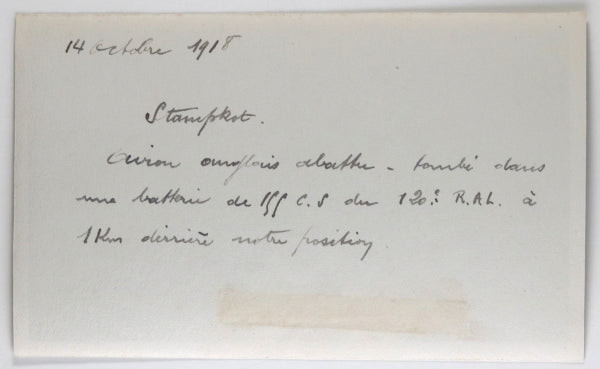 14 octobre 1918
Stampkot.
Avion anglais abattu - tombé dans
une batterie de 155 C.S du 120e R.A.L. à
1 Km derrière notre position